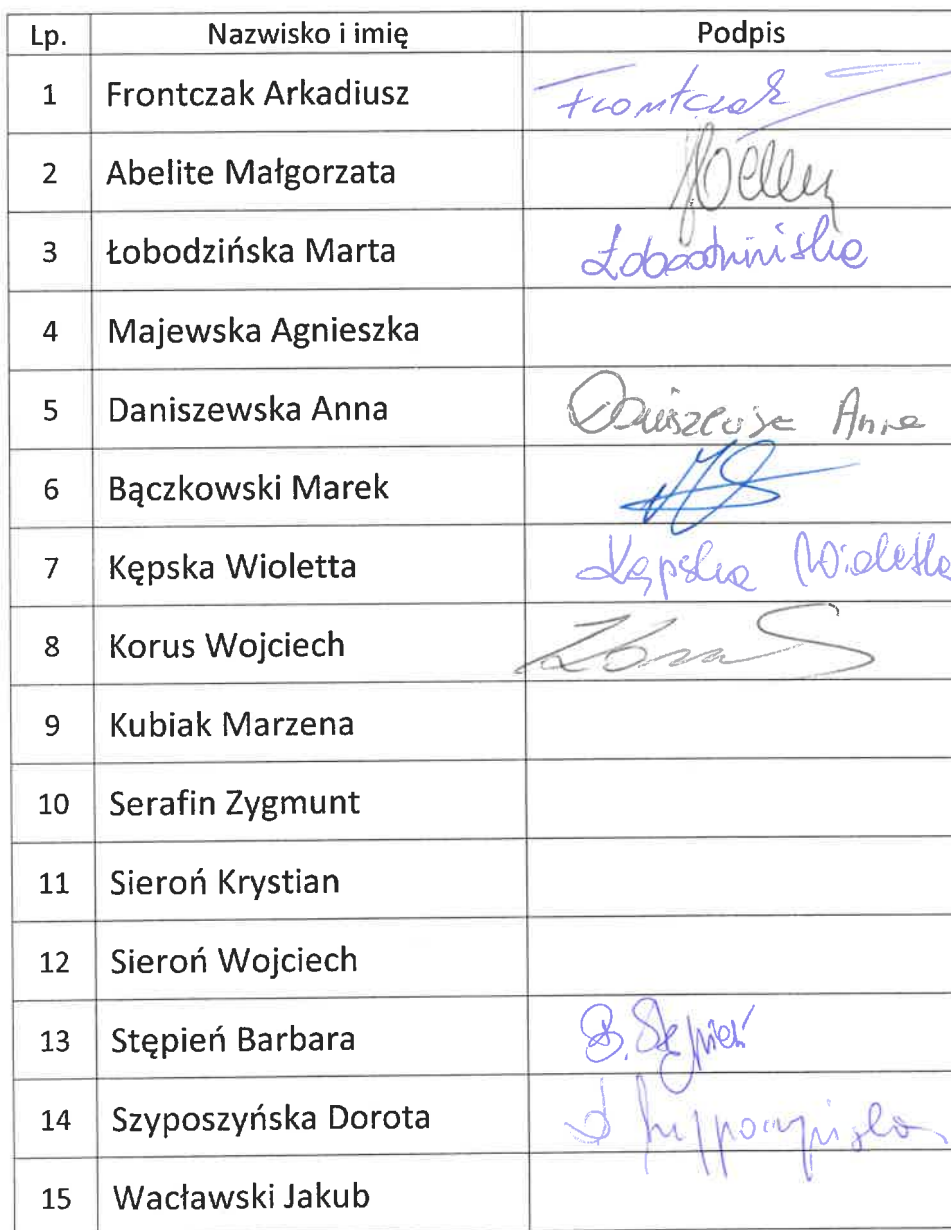 Lp. Nazwisko i imię Podpis
1 Frontczak Arkadiusz Frontczak
2 Abelite Małgorzata
3 Łobodzińska Marta Łobodzińska
4 Majewska Agnieszka
5 Daniszewska Anna Anna
6 Bączkowski Marek
7 Kępska Wioletta Kępska Wioletta
8 Korus Wojciech
9 Kubiak Marzena
10 Serafin Zygmunt
11 Sieroń Krystian
12 Sieroń Wojciech
13 Stępień Barbara B. Stępień
14 Szyposzyńska Dorota
15 Wacławski Jakub